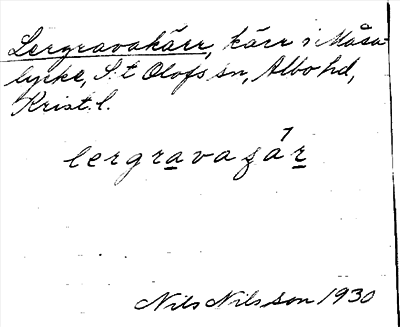 Lergravakärr, kärr i Måsa-
lycke, S:t Olofs sn, Albo hd,
Krist. l.
lergravaʃä́r
Nils Nilsson 1930